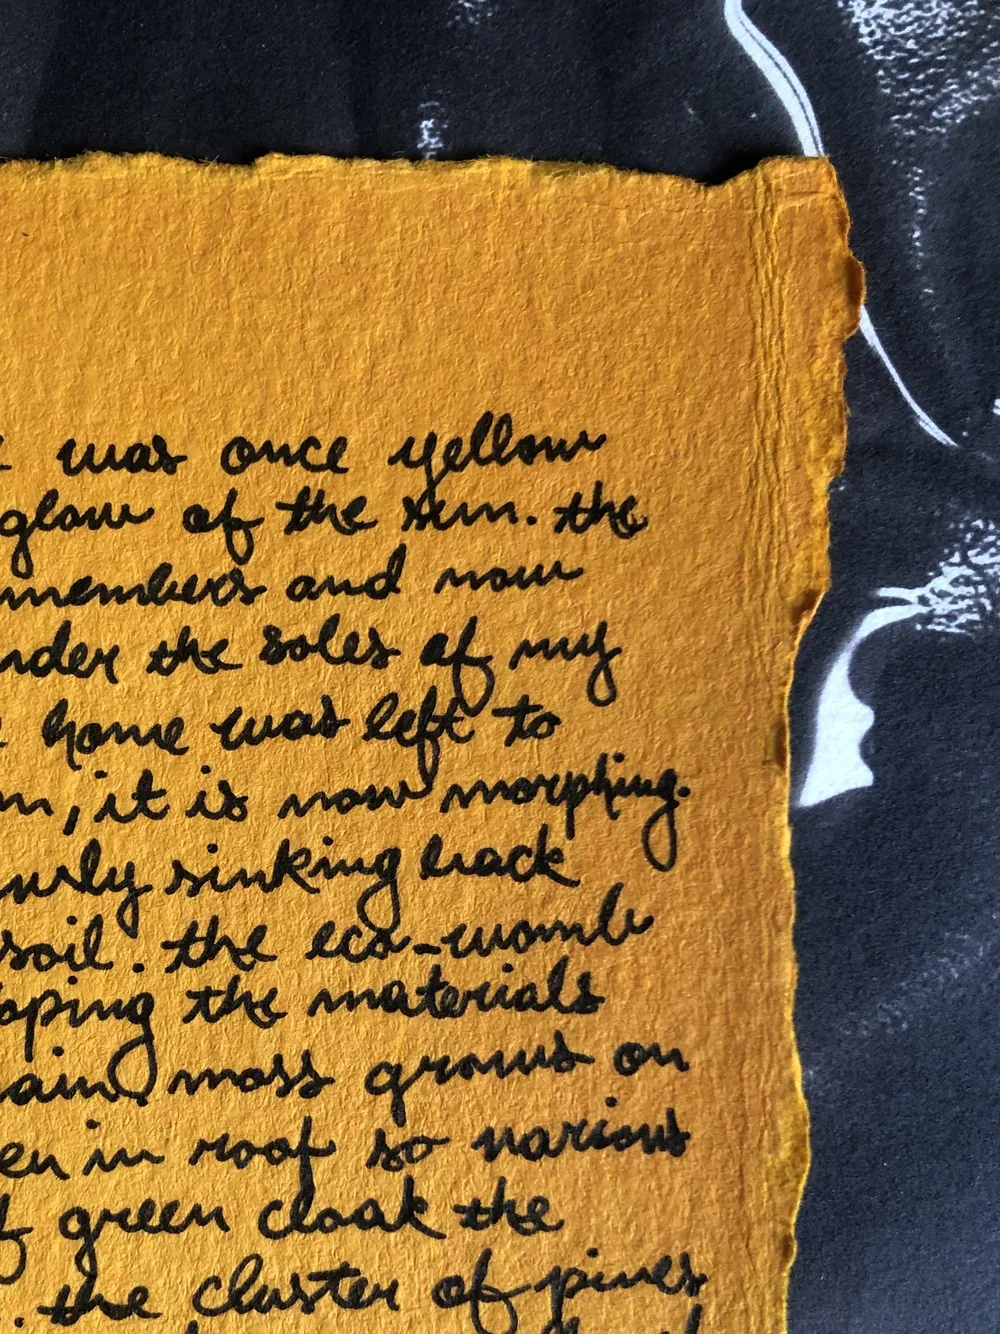 was once yellow
glow of the sun. the
members and now
nder the soles of my
home was left to
n, it is now morphing.
wly sinking back
soil. the eco-womb
aping the materials
ain. moss grows on
en in roof so various
f green cloak the
. the cluster of pines